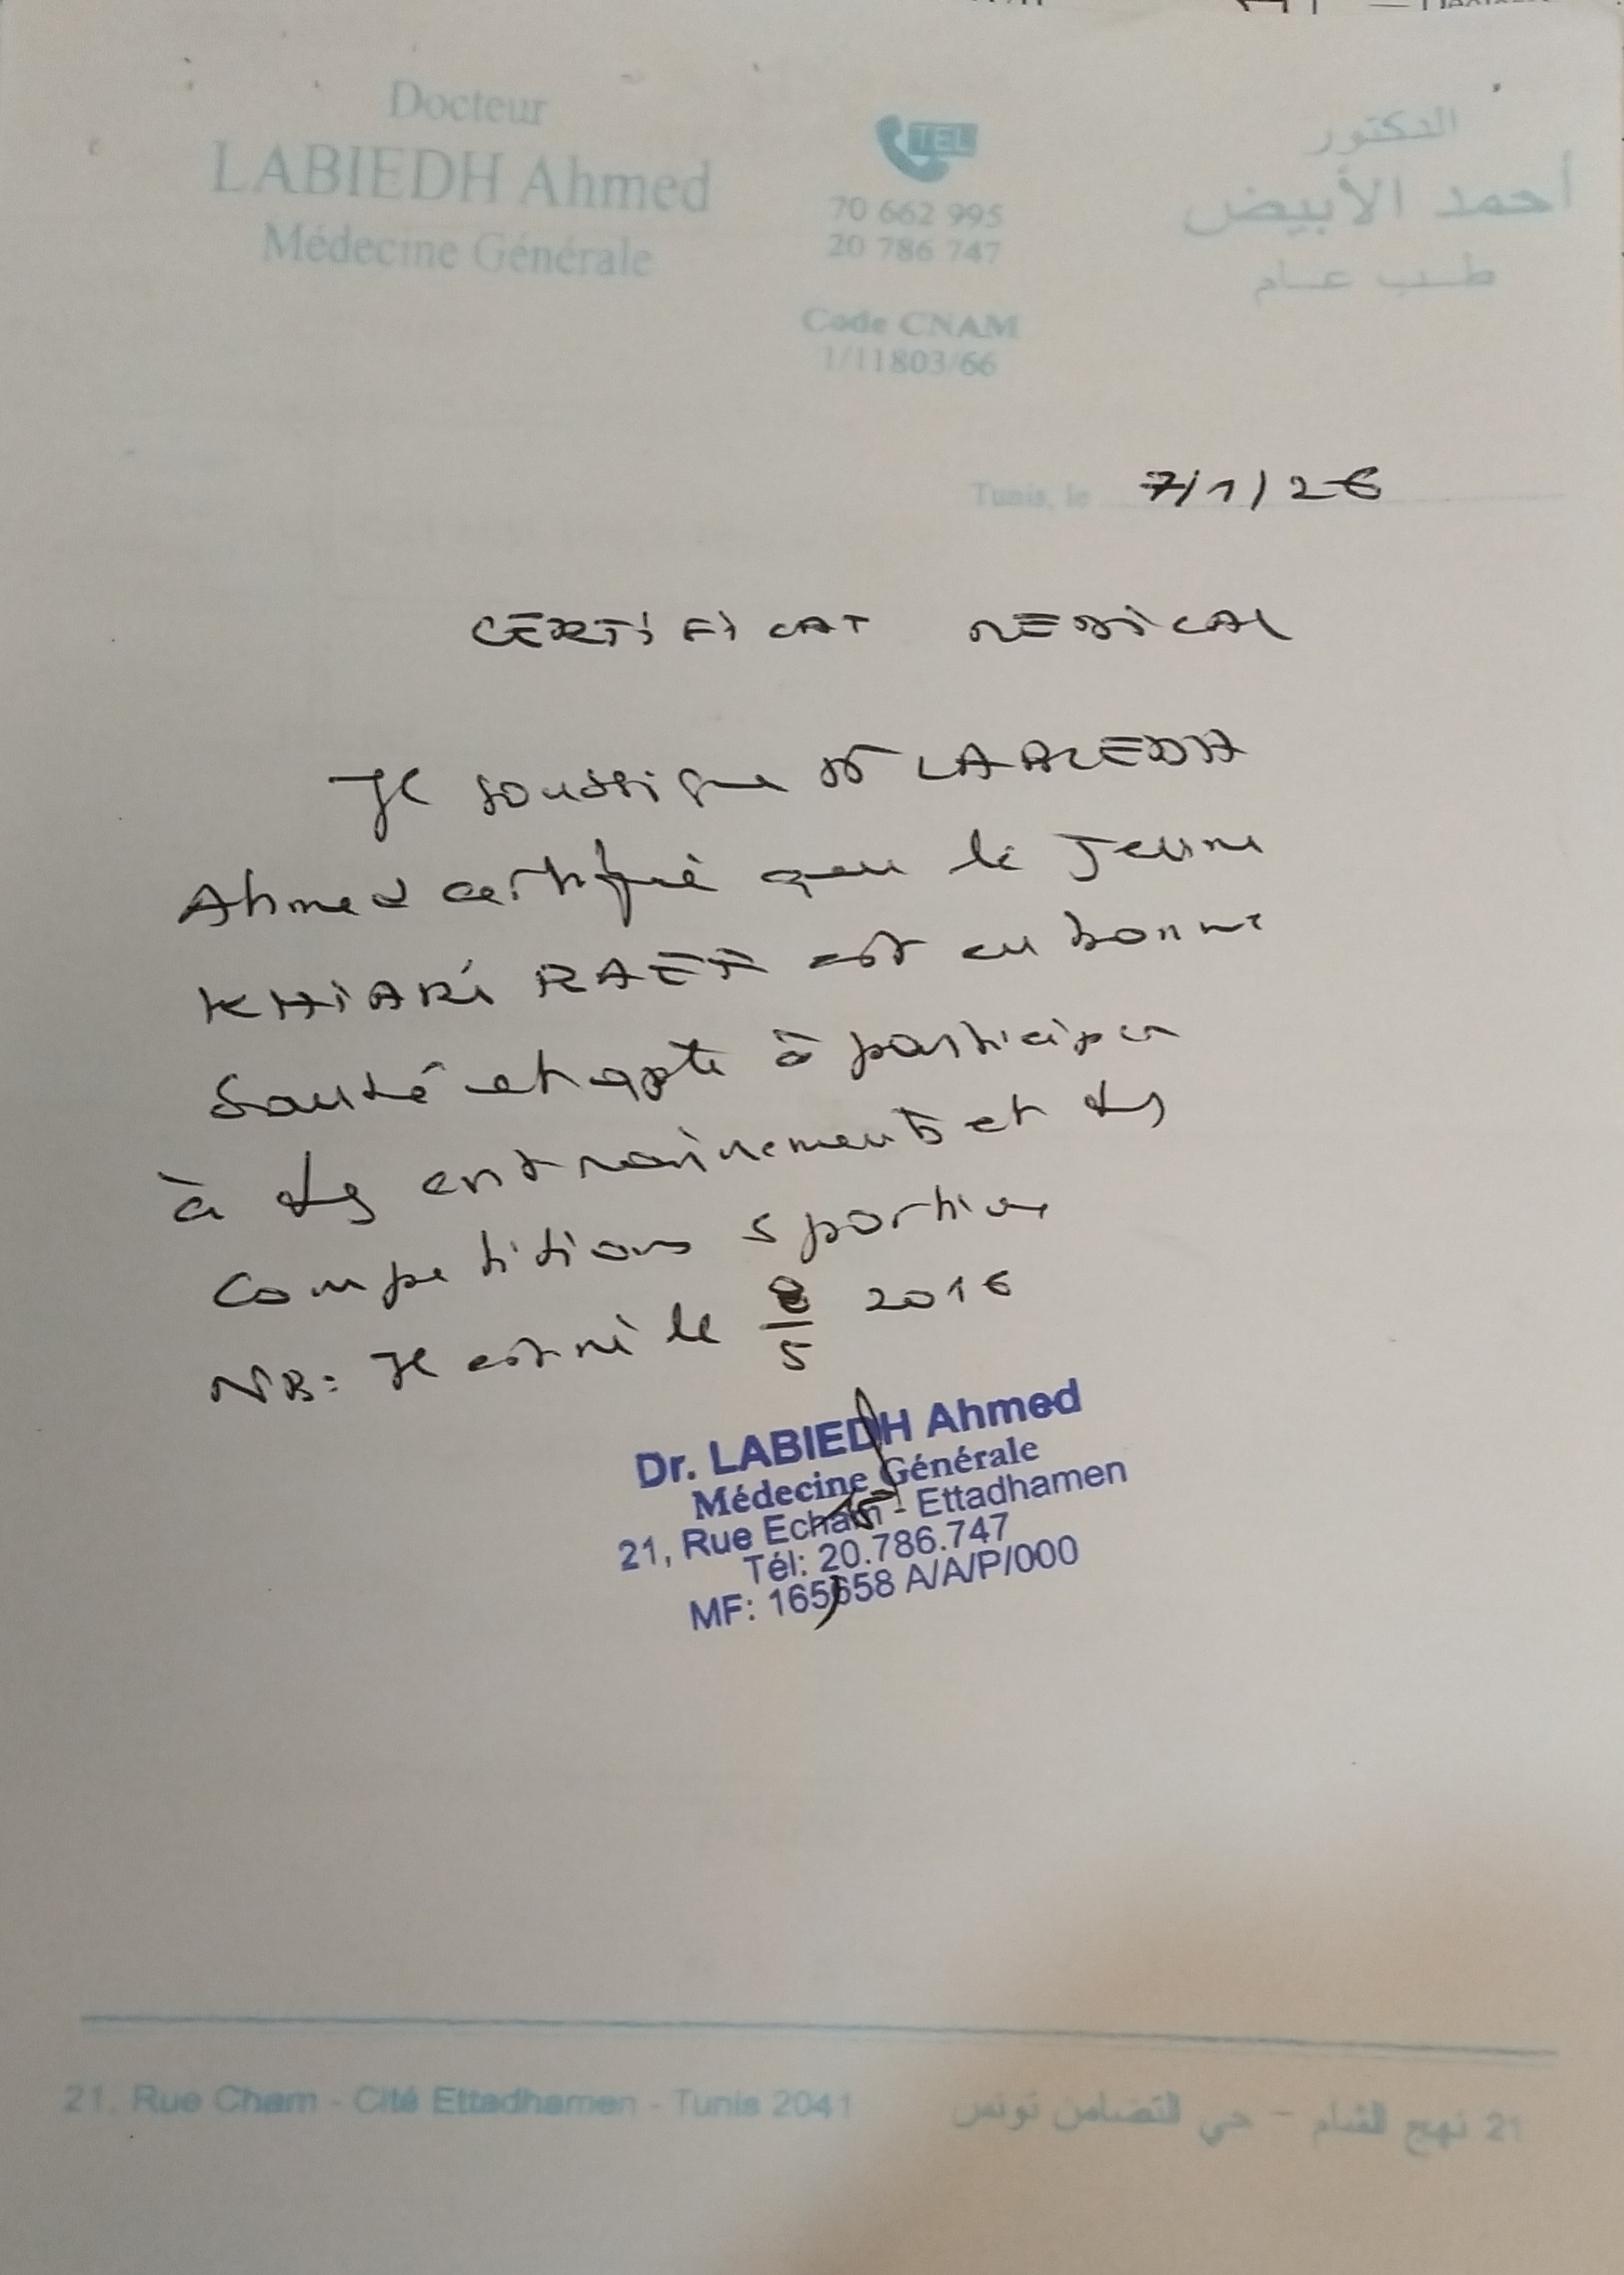 Docteur
LABIEDH Ahmed
Médecine Générale
TEL
70 662 995
20 786 747
Code CNAM
1/11803/66
الدكتور
أحمد الأبيض
طب عام
Tunis, le 7/1/26
CERTIFICAT MEDICAL
Je soussigne Dr LABIEDH
Ahmed certifie que le Jeune
KHIARI RAEF est en bonne
Santé et apte à participer
à des entrainements et des
Competitions sportives
NB: Il est né le 8/5 2016
Dr. LABIEDH Ahmed
Médecine Générale
21, Rue Echam - Ettadhamen
Tél: 20.786.747
MF: 165658 A/A/P/000
21, Rue Cham - Cité Ettadhamen - Tunis 2041
21 نهج الشام - حي التضامن تونس